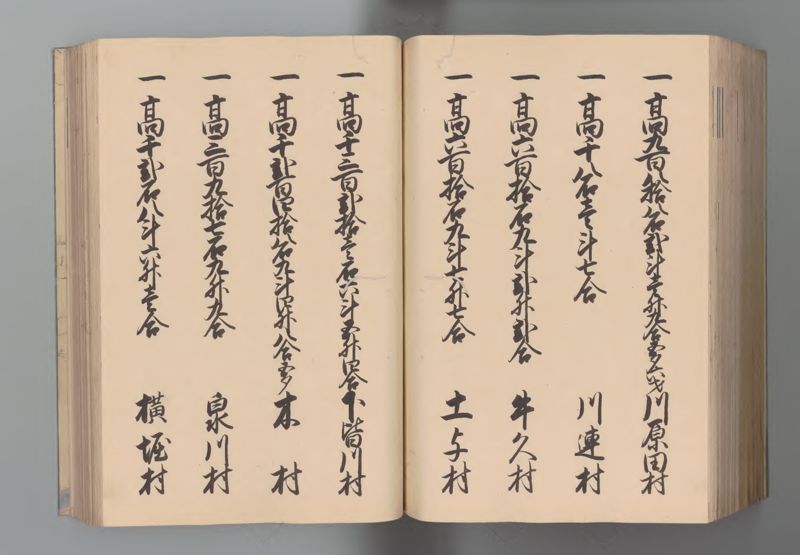 一高九百八拾八石弐斗壱升九合 川原田村
一高千八石壱斗七合 川連村
一高六百拾石九斗弐升弐合 牛久村
一高六百拾石九斗六升七合 土与村
一高千三百弐拾壱石六斗五升四合 下皆川村
一高千弐百四拾八石九斗四升八合 木村
一高三百九拾七石九升九合 泉川村
一高千弐石八斗六升壱合 横堀村